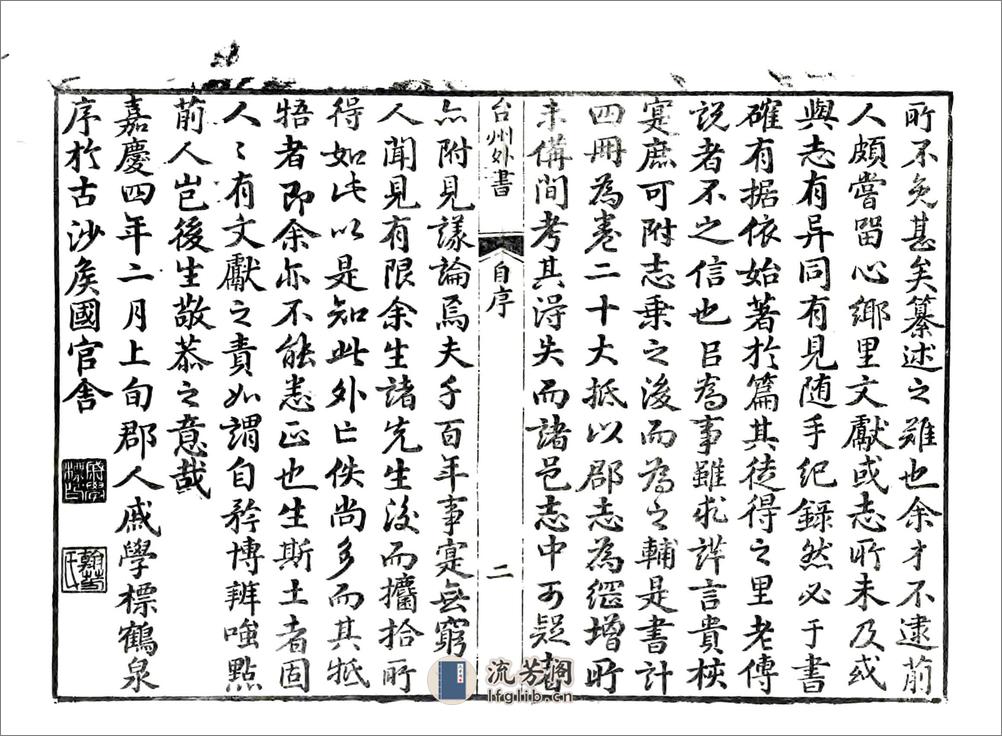 所不免甚矣纂述之難也余才不逮前
人頗嘗留心鄉里文獻或志所未及或
與志有异同有見随手紀錄然必于書
確有据依始著於篇其徒得之里老傳
說者不之信也以為事雖求詳言貴核
寔庶可附志乗之後而為之輔是書計
四冊為卷二十大抵以郡志為綱增所
未備間考其得失而諸邑志中可疑者
台州外書
自序
二
亦附見議論焉夫千百年事寔無窮
人聞見有限余生諸先生後而攟拾所
得如此以是知此外亡佚尚多而其牴
牾者即余亦不能悉正也生斯土者固
人人有文獻之責如謂自矜博辨嗤點
前人豈後生敬恭之意哉
嘉慶四年二月上旬郡人戚學標鶴泉
序於古沙矦國官舍
流芳阁
lfglib.cn